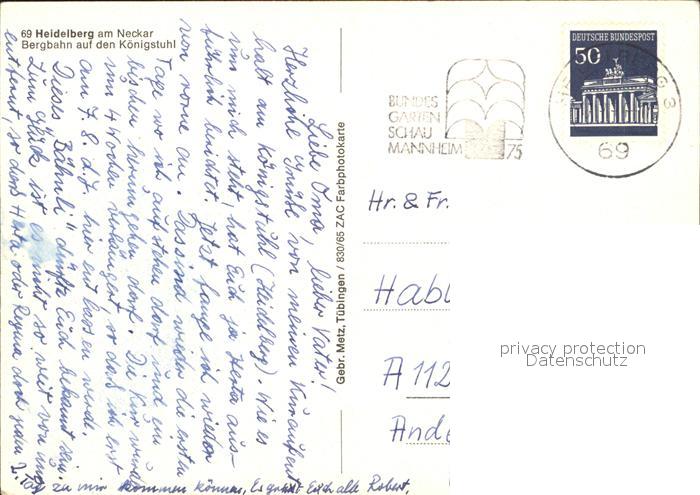 69 Heidelberg am Neckar
Bergbahn auf den Königstuhl
Liebe Oma, lieber Vater!
Herzliche Grüße von meinem Kuraufent-
halt am Königstuhl (Heidelberg). Wie es
um mich steht, hat Euch ja Herta aus-
führlich berichtet. Jetzt fange ich wieder
von vorne an. Das sind wieder die ersten
Tage wo ich aufstehen darf und ein
bischen herumgehen darf. Die Kur wurde
um 4 Wochen verlängert so daß ich erst
am 7. 8. d. J. hier entlassen werde.
Dieses "Bähnli" dürfte Euch bekannt sein.
Zum Glück ist es nicht so weit von uns
entfernt, so daß Herta oder Regina doch jeden 2. Tag
zu mir kommen können. Es grüßt Euch alle Robert.
Gebr. Metz, Tübingen / 830/65 ZAC Farbphotokarte
BUNDES
GARTEN
SCHAU
MANNHEIM 75
DEUTSCHE BUNDESPOST
50
HEIDELBERG 3
69
Hr. & Fr.
Hab
A 112
Ande
privacy protection
Datenschutz